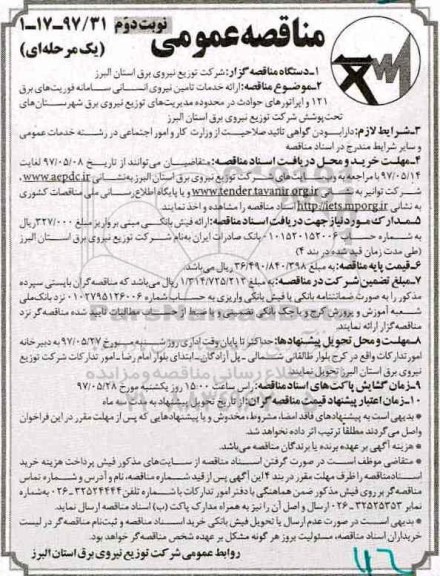 مناقصه عمومی
نوبت دوم
۹۷/۳۱-۱۷-۱
(یک مرحله‌ای)
۱-دستگاه مناقصه گزار: شرکت توزیع نیروی برق استان البرز
۲-موضوع مناقصه: ارائه خدمات تامین نیروی انسانی سامانه فوریت‌های برق
۱۲۱ و اپراتورهای حوادث در محدوده مدیریت‌های توزیع نیروی برق شهرستان‌های
تحت پوشش شرکت توزیع نیروی برق استان البرز
۳-شرایط لازم: دارا بودن گواهی تائید صلاحیت از وزارت کار و امور اجتماعی در رشته خدمات عمومی
و سایر شرایط مندرج در اسناد مناقصه
۴-مهلت خرید و محل دریافت اسناد مناقصه: متقاضیان می‌توانند از تاریخ ۹۷/۰۵/۰۸ لغایت
۹۷/۰۵/۱۴ با مراجعه به وب سایت‌های شرکت توزیع نیروی برق استان البرز به نشانی www.aepdc.ir،
شرکت توانیر به نشانی www.tender.tavanir.org.ir و یا پایگاه اطلاع‌رسانی ملی مناقصات کشوری
به نشانی http://iets.mporg.ir اسناد مناقصه را مشاهده و اخذ نمایند
۵-مدارک مورد نیاز جهت دریافت اسناد مناقصه: ارائه فیش بانکی مبنی بر واریز مبلغ ۳۲۷/۰۰۰ ریال
به شماره حساب ۰۱۰۱۵۲۰۱۵۲۰۰۶ بانک صادرات ایران به‌نام شرکت توزیع نیروی برق استان البرز
(طی مدت زمان قید شده در بند ۴)
۶-قیمت پایه مناقصه: به مبلغ ۳۶/۴۹۰/۸۴۰/۳۹۸ ریال می‌باشد.
۷-مبلغ تضمین شرکت در مناقصه: به مبلغ ۱/۳۱۴/۷۲۵/۲۱۲ ریال می‌باشد که مناقصه‌گران بایستی سپرده
مذکور را به صورت ضمانتنامه بانکی یا فیش بانکی واریزی به حساب شماره ۰۱۰۲۷۹۵۱۲۶۰۰۶ نزد بانک ملی
شعبه آموزش و پرورش کرج و یا چک بانکی تضمینی و یا ضبط از محل مطالبات تایید شده مناقصه گر نزد
مناقصه گزار ارائه نمایند.
۸-مهلت و محل تحویل پیشنهادها: حداکثر تا پایان وقت اداری روز شنبه مورخ ۹۷/۰۵/۲۷ به دبیرخانه
امور تدارکات واقع در کرج بلوار طالقانی شمالی - پل آزادگان - ابتدای بلوار امام رضا - امور تدارکات شرکت توزیع
نیروی برق استان البرز تحویل نمایند.
۹-زمان گشایش پاکت‌های اسناد مناقصه: راس ساعت ۱۵:۰۰ روز یکشنبه مورخ ۹۷/۰۵/۲۸
۱۰-زمان اعتبار پیشنهاد قیمت مناقصه گران: از تاریخ تحویل پیشنهاد به مدت سه ماه
* بدیهی است به پیشنهادهای فاقد امضا، مشروط، مخدوش و یا پیشنهادهایی که پس از مهلت مقرر در این فراخوان
واصل می‌گردند مطلقاً ترتیب اثر داده نخواهد شد.
* هزینه آگهی بر عهده برنده یا برندگان مناقصه می‌باشد.
* متقاضی موظف است در صورت گرفتن اسناد مناقصه از سایت‌های مذکور فیش پرداخت هزینه خرید
اسناد مناقصه را ظرف مهلت مقرر در بند ۴ این آگهی پس از قید شماره مناقصه، نام و آدرس و شماره تماس
مناقصه‌گر بر روی فیش مذکور ضمن هماهنگی با دفتر امور تدارکات با شماره تلفن ۳۲۵۲۴۴۴۴-۰۲۶ به شماره
نمابر ۳۲۵۲۵۳۵۳-۰۲۶ ارسال و اصل آن را نیز به همراه مدارک پاکت (ب) اسناد مناقصه ارسال نماید.
* بدیهی است در صورت عدم ارسال یا تحویل فیش بانکی خرید اسناد مناقصه و ثبت نام مناقصه گر در لیست
خریداران اسناد مناقصه، مسئولیت بروز هر گونه مشکل بر عهده شخص مناقصه گر خواهد بود.
روابط عمومی شرکت توزیع نیروی برق استان البرز